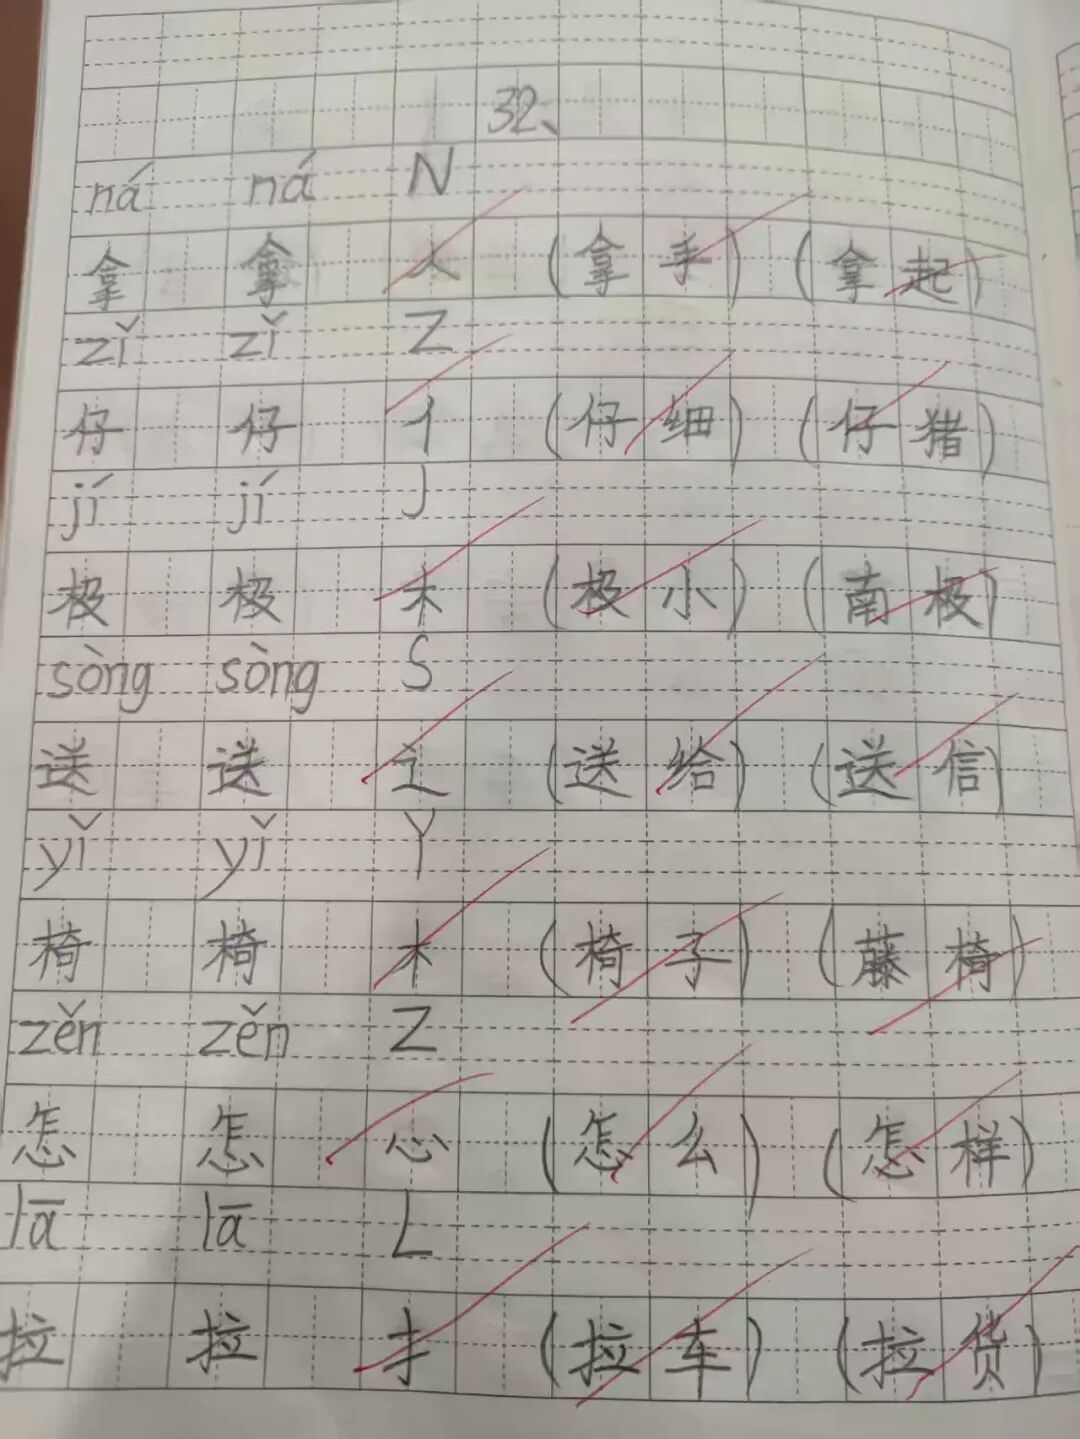 32、
ná ná N
拿 拿 人 (拿手) (拿起)
zǐ zǐ Z
仔 仔 亻 (仔细) (仔猪)
jí jí J
极 极 木 (极小) (南极)
sòng sòng S
送 送 辶 (送给) (送信)
yǐ yǐ Y
椅 椅 木 (椅子) (藤椅)
zěn zěn Z
怎 怎 心 (怎么) (怎样)
lā lā L
拉 拉 扌 (拉车) (拉货)